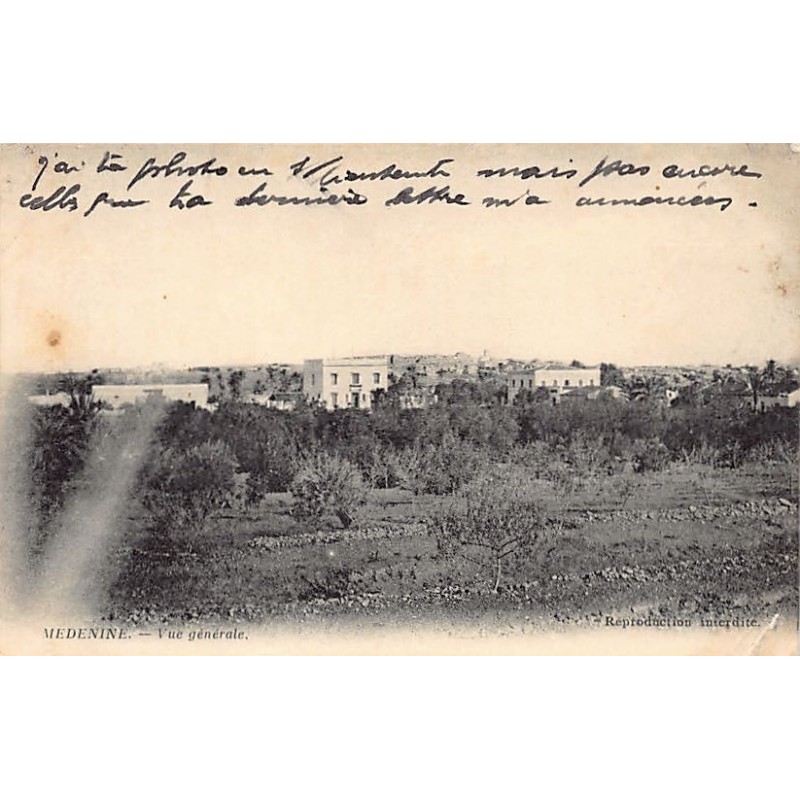 j'ai ta photo en mais pas encore
celles que ta dernière lettre m'a annoncées.
MEDENINE. — Vue générale.
Reproduction interdite.